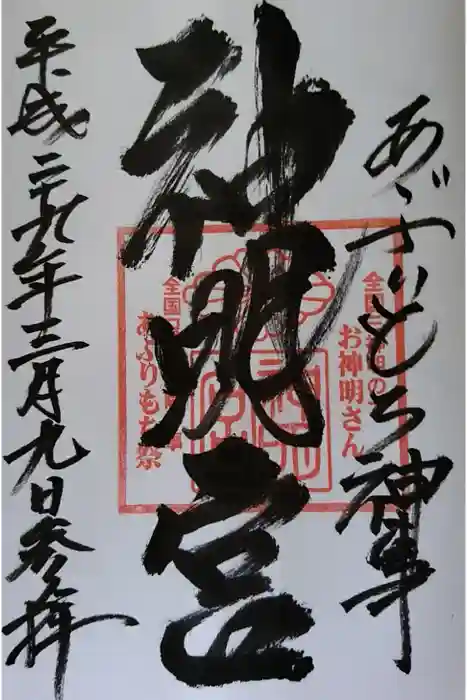 あぶりもち神事
神明宮
平成二十九年三月九日参拝
お神明さん
全国
あぶりもち祭